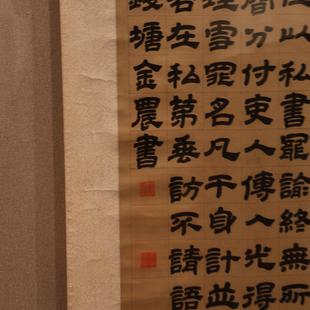 以私書諭終無所
分付吏人傳人光得
理雪罪名凡干身計並
名在私第垂訪不請語
錢塘金農書